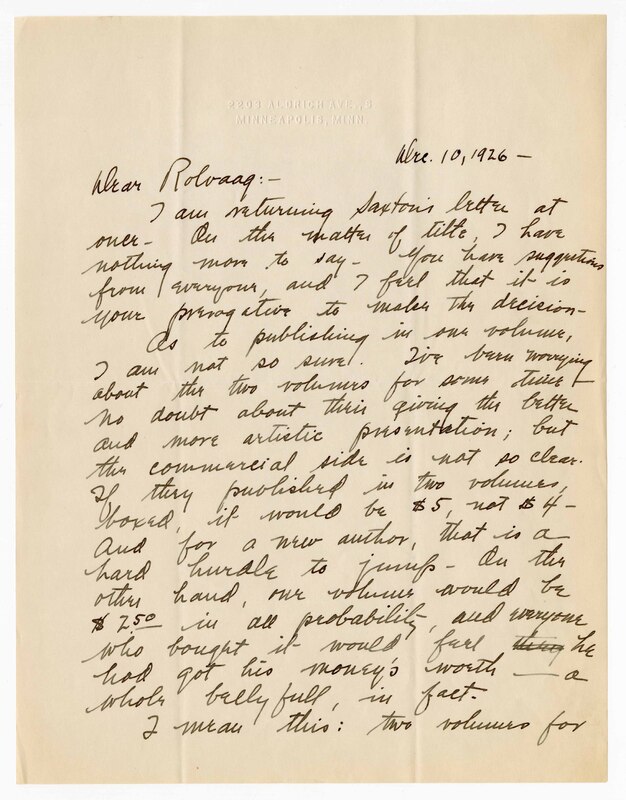 2203 ALDRICH AVE., S.
MINNEAPOLIS, MINN.
Dec. 10, 1926 —
Dear Rolvaag:—
I am returning Saxton's letter at
once — On the matter of title, I have
nothing more to say — You have suggestions
from everyone, and I feel that it is
your prerogative to make the decision —
As to publishing in one volume,
I am not so sure. I've been worrying
about the two volumes for some time —
No doubt about their giving the better
and more artistic presentation; but
the commercial side is not so clear.
If they published in two volumes,
boxed, it would be $5, not $4 —
And for a new author, that is a
hard hurdle to jump — On the
other hand, one volume would be
$2.50 in all probability, and everyone
who bought it would feel they he
had got his money's worth — a
whole belly full, in fact.
I mean this: two volumes for